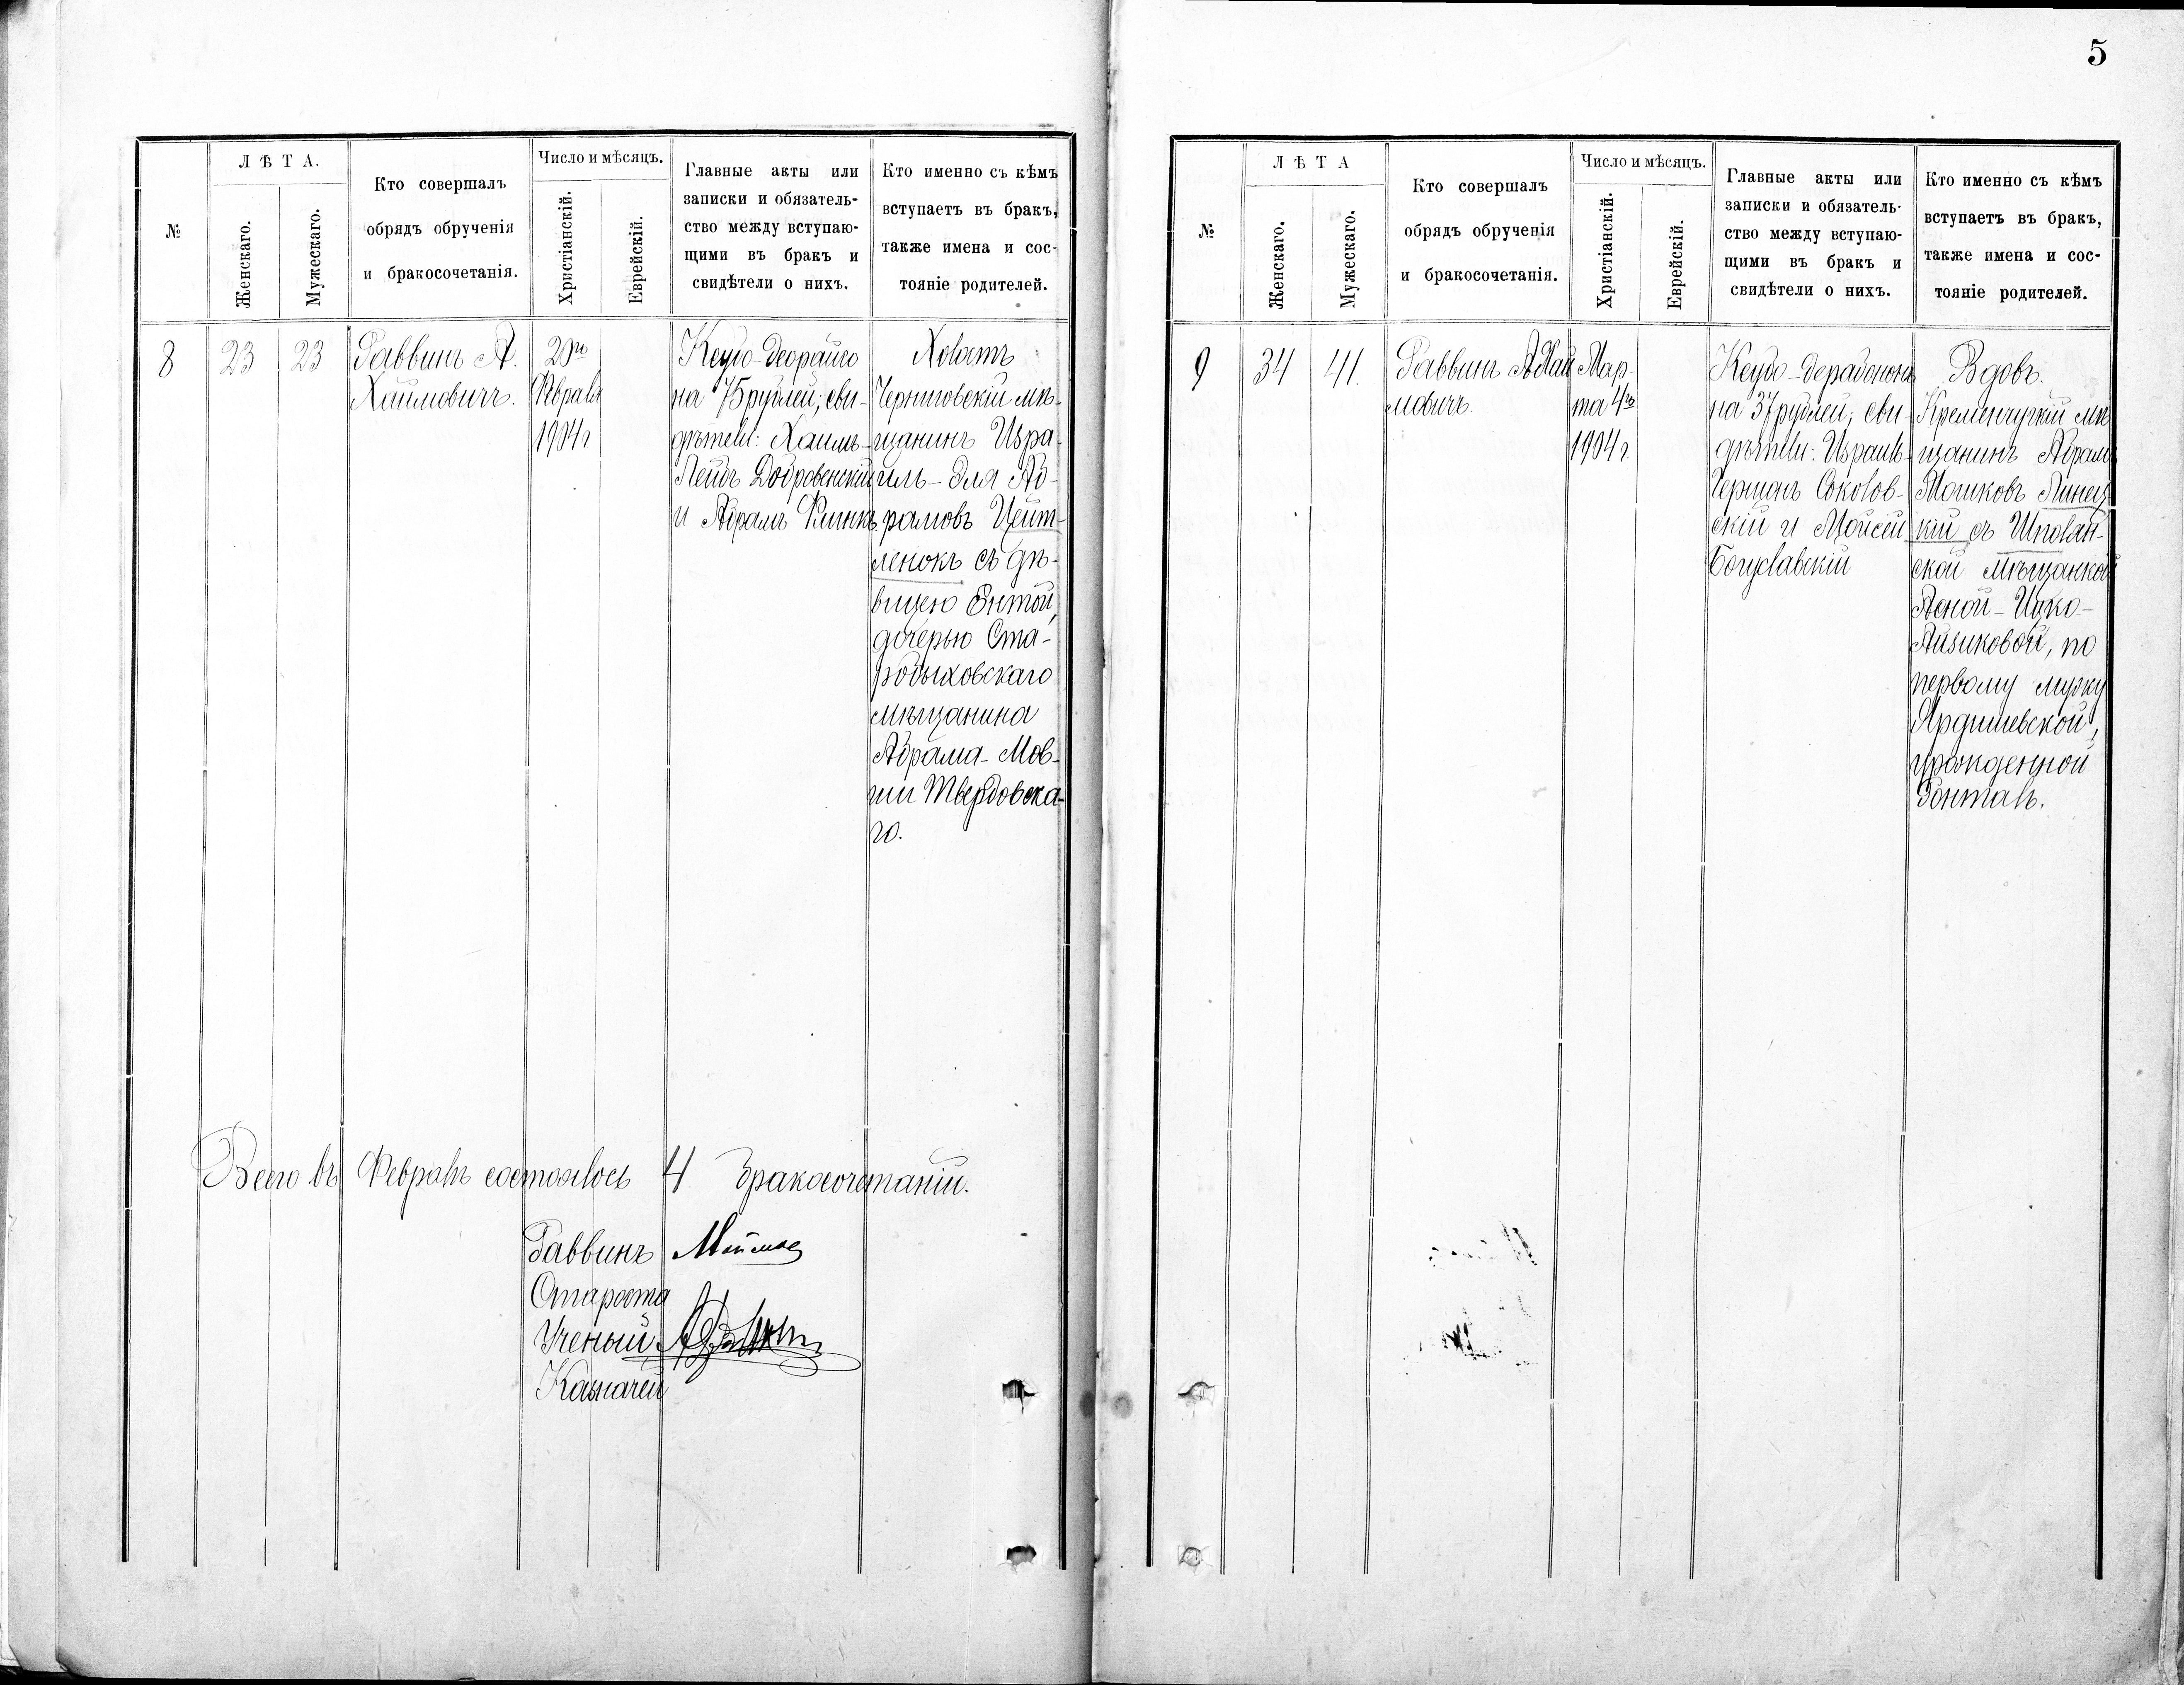 №
Л Ѣ Т А.
Женскаго.
Мужескаго.
Кто совершалъ
обрядъ обрученія
и бракосочетанія.
Число и мѣсяцъ.
Христіанскій.
Еврейскій.
Главные акты или
записки и обязатель-
ство между вступаю-
щими въ бракъ и
свидѣтели о нихъ.
Кто именно съ кѣмъ
вступаетъ въ бракъ,
также имена и сос-
тояніе родителей.
8
23
23
Раввинъ А.
Хаимовичъ.
Февраля
1904 г
на 75 рублей; сви-
дѣтели: Хаимъ-
Лейбъ Добровенскій
и Абрамъ
Холостъ
Черниговскій мѣ-
щанинъ Изра-
иль-Эля Аб-
рамовъ Цейт-
ленокъ съ дѣ-
вицею Энтой,
дочерью Ста-
робыховскаго
мѣщанина
Абрама-Мов-
ши Твердовска-
го.
Всего въ Февралѣ состоялось 4 бракосочетаній.
Раввинъ
Староста
Ученый
Казначей
5
№
Л Ѣ Т А
Женскаго.
Мужескаго.
Кто совершалъ
обрядъ обрученія
и бракосочетанія.
Число и мѣсяцъ.
Христіанскій.
Еврейскій.
Главные акты или
записки и обязатель-
ство между вступаю-
щими въ бракъ и
свидѣтели о нихъ.
Кто именно съ кѣмъ
вступаетъ въ бракъ,
также имена и сос-
тояніе родителей.
9
34
41.
Раввинъ А. Хаи
мовичъ.
Мар-
та 4го
1904 г.
Кеубо-дерабононъ
на 37 рублей; сви-
дѣтели: Израиль-
Гершонъ Соколов-
скій и Мойсей
Богуславскій
Вдовъ.
Кременчугскій мѣ
щанинъ Абрамъ
Мошковъ Линец
кій съ Шполян-
ской мѣщанкой
Асной-Ицко-
Айзиковой, по
первому мужу
Ярдишевской,
урожденной
Гонталь.